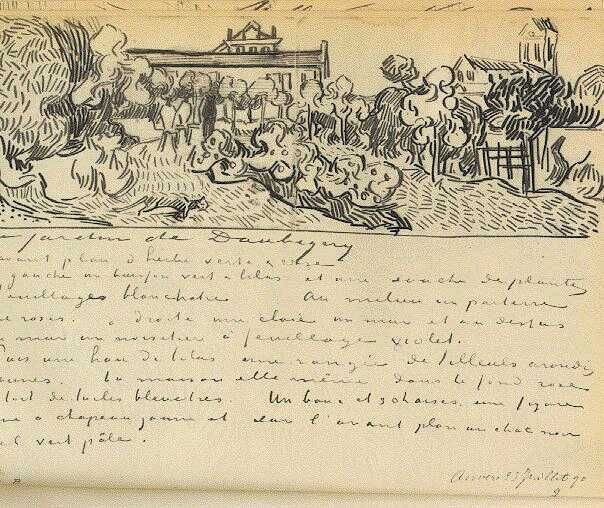 jardin de Daubigny
avant plan d'herbe verte & rose
gauche un buisson vert & lilas et une souche de plantes
feuillages blanchatre Au milieu un parterre
de roses. à droite une claie un mur et au dessus
du mur un noisetier à feuillage violet.
Puis une haie de lilas une rangée de tilleuls arondis
jaunes. La maison elle même dans le fond rose
toit de tuiles bleuatres. Un banc et 3 chaises, une figure
noire à chapeau jaune et sur l'avant plan un chat noir
ciel vert pâle.
Auvers 23 Juillet 90
2